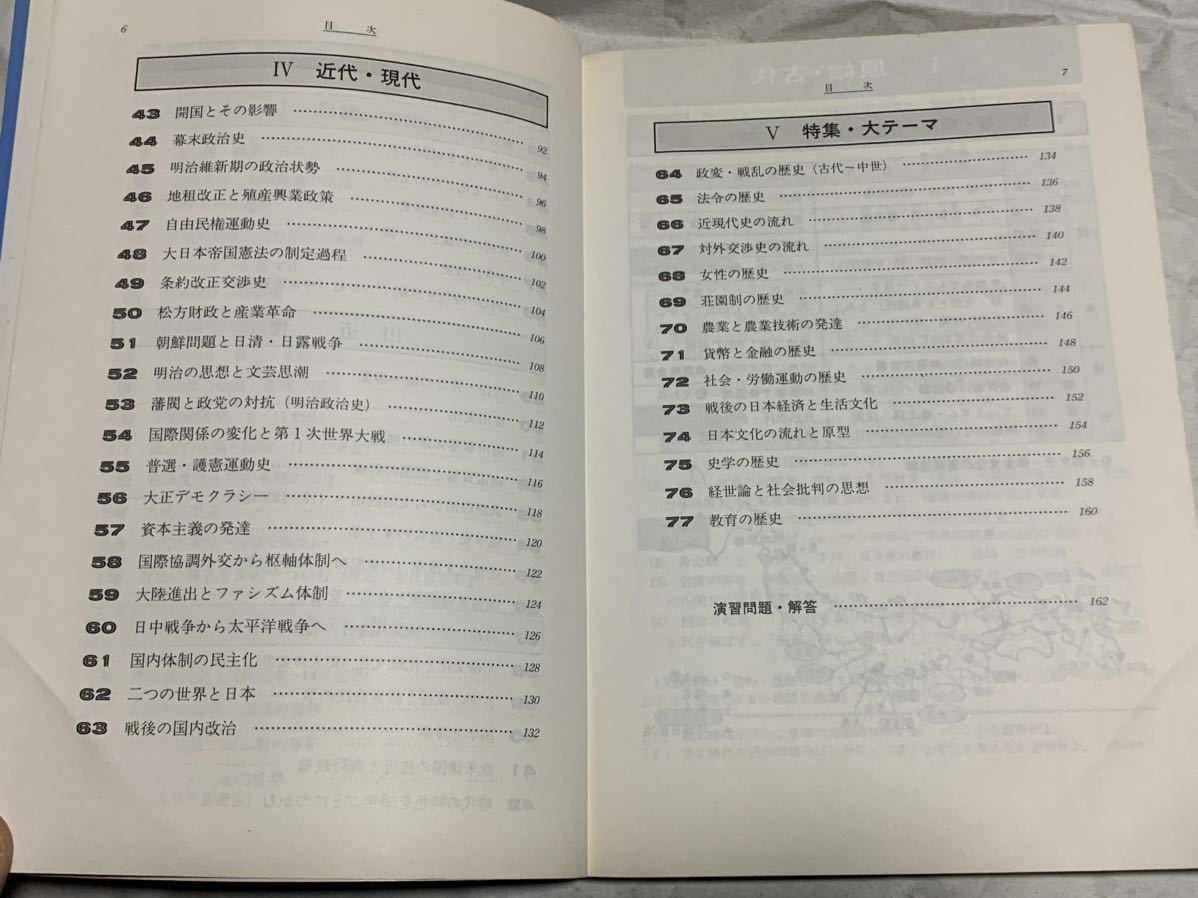 6
目次
IV 近代・現代
43 開国とその影響 …… 92
44 幕末政治史 …… 94
45 明治維新期の政治状勢 …… 96
46 地租改正と殖産興業政策 …… 98
47 自由民権運動史 …… 100
48 大日本帝国憲法の制定過程 …… 102
49 条約改正交渉史 …… 104
50 松方財政と産業革命 …… 106
51 朝鮮問題と日清・日露戦争 …… 108
52 明治の思想と文芸思潮 …… 110
53 藩閥と政党の対抗（明治政治史） …… 112
54 国際関係の変化と第1次世界大戦 …… 114
55 普選・護憲運動史 …… 116
56 大正デモクラシー …… 118
57 資本主義の発達 …… 120
58 国際協調外交から枢軸体制へ …… 122
59 大陸進出とファシズム体制 …… 124
60 日中戦争から太平洋戦争へ …… 126
61 国内体制の民主化 …… 128
62 二つの世界と日本 …… 130
63 戦後の国内政治 …… 132
7
目次
V 特集・大テーマ
64 政変・戦乱の歴史（古代〜中世） …… 134
65 法令の歴史 …… 136
66 近現代史の流れ …… 138
67 対外交渉史の流れ …… 140
68 女性の歴史 …… 142
69 荘園制の歴史 …… 144
70 農業と農業技術の発達 …… 146
71 貨幣と金融の歴史 …… 148
72 社会・労働運動の歴史 …… 150
73 戦後の日本経済と生活文化 …… 152
74 日本文化の流れと原型 …… 154
75 史学の歴史 …… 156
76 経世論と社会批判の思想 …… 158
77 教育の歴史 …… 160
演習問題・解答 …… 162